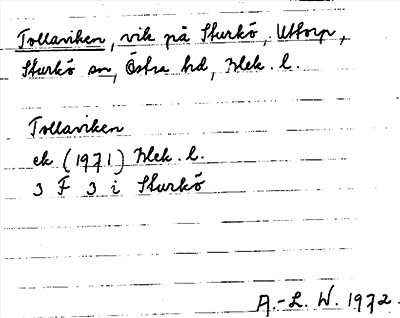 Trollaviken, vik på Sturkö, Uttorp,
Sturkö sn, Östra hd, Blek. l.
Trollaviken
ek (1971) Blek. l.
3 F 3 i Sturkö
A.-L. W. 1972.